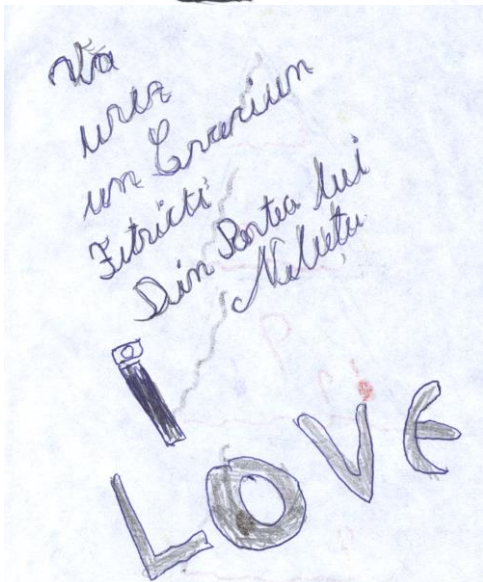 Va
urez
un Craciun
Fitricti
Din Partea lui
Nelutu
I
LOVE